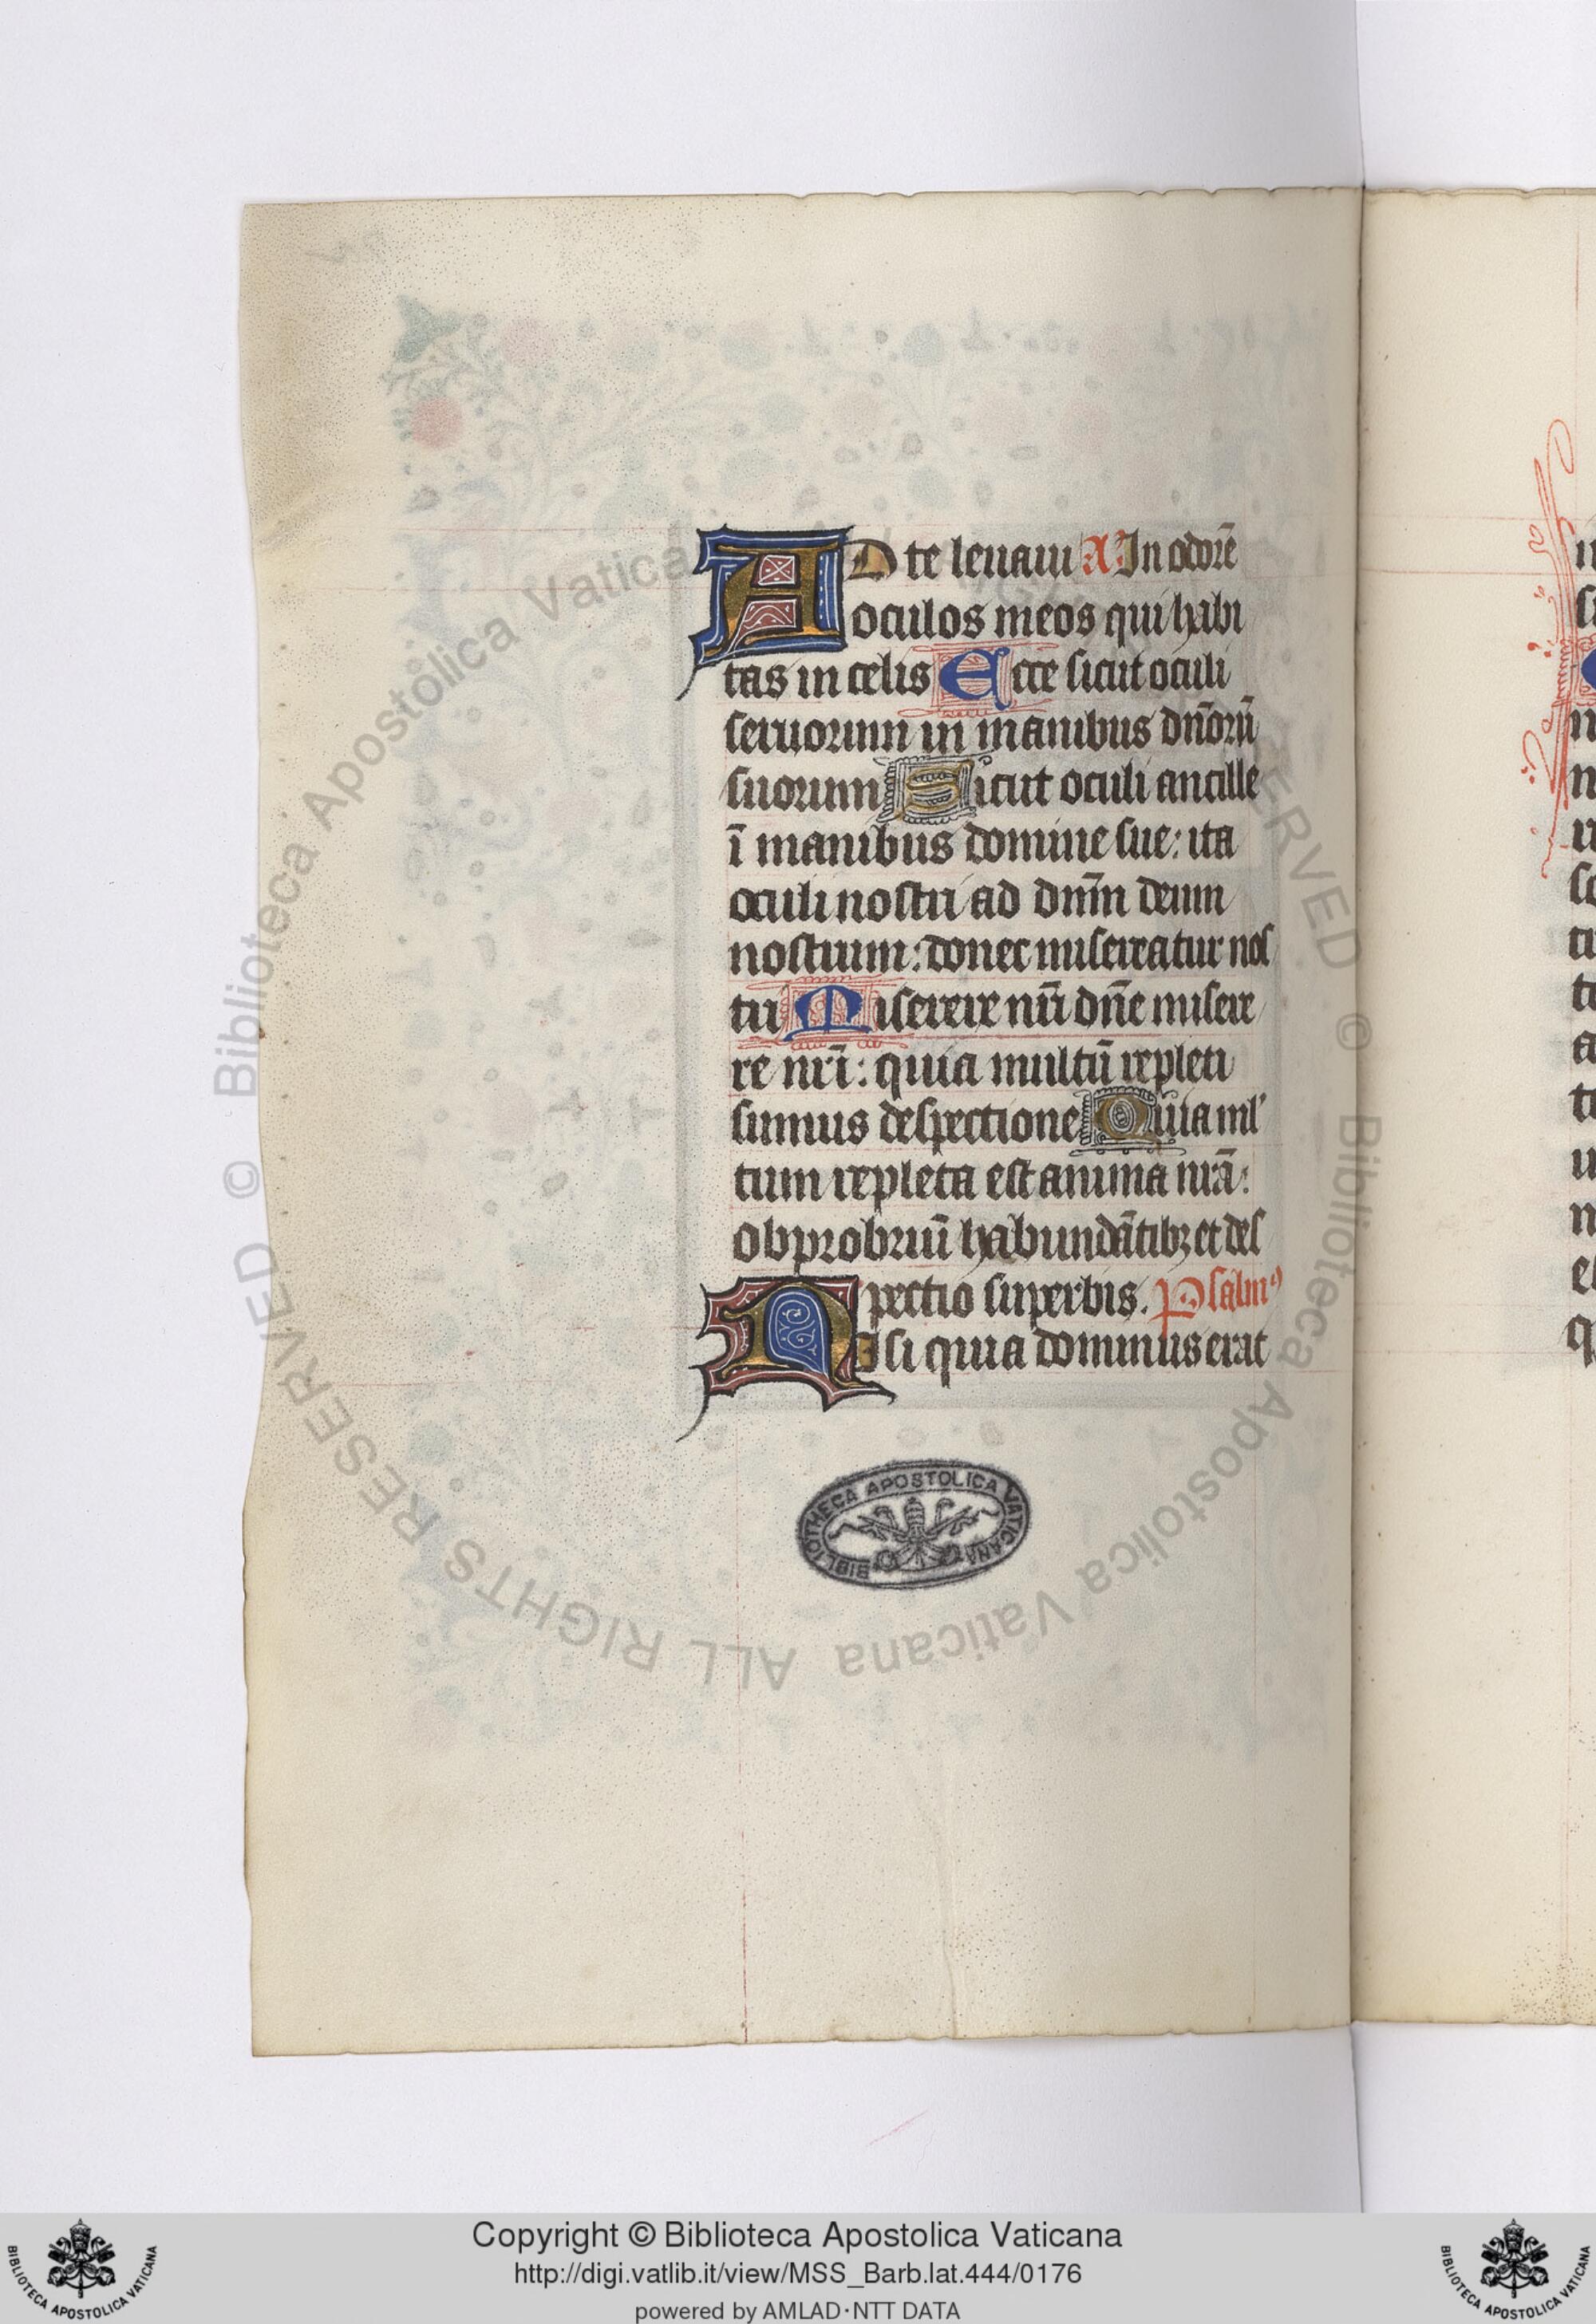 AD te leuaui A' In odorē
oculos meos qui habi
tas in celis Ecce sicut oculi
seruorum in manibus dn̄orū
suorum Sicut oculi ancille
ī manibus domine sue: ita
oculi nostri ad dnm̄ deum
nostrum: donec misereatur nos
tri Miserere nr̄i dn̄e misere
re nrī: quia multū repleti
sumus despectione Quia ml'
tum repleta est anima nrā:
obprobriū habundātibꝫ et des
pectio superbis. Psalmꝰ
NIsi quia dominus erat
BIBLIOTHECA APOSTOLICA VATICANA
© Biblioteca Apostolica Vaticana ALL RIGHTS RESERVED
Copyright © Biblioteca Apostolica Vaticana
http://digi.vatlib.it/view/MSS_Barb.lat.444/0176
powered by AMLAD·NTT DATA
BIBLIOTECA APOSTOLICA VATICANA
BIBLIOTECA APOSTOLICA VATICANA